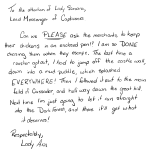 To the attention of Lady Simone,
Land Manager of Cadmaron
Can we PLEASE ask the merchants to keep
their chickens in an enclosed pen!! I am so DONE
chasing them when they escape. The last time a
rooster got out, I had to jump off the castle wall,
down into a mud puddle, which splashed
EVERYWHERE! Then I followed it out to the main
field
and half way down the great hill.
Next time I'm just going to let it run straight
into the Dark Forest, and there it'll get what
it deserves!
Respectfully,
Lady Ava